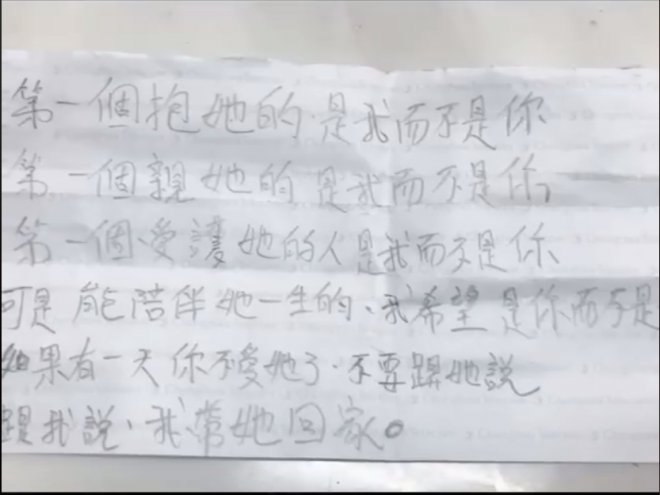 第一個抱她的是我而不是你
第一個親她的是我而不是你
第一個愛護她的人是我而不是你
可是能陪伴她一生的、我希望是你而不是
如果有一天你不愛她了、不要跟她說
跟我說、我帶她回家。